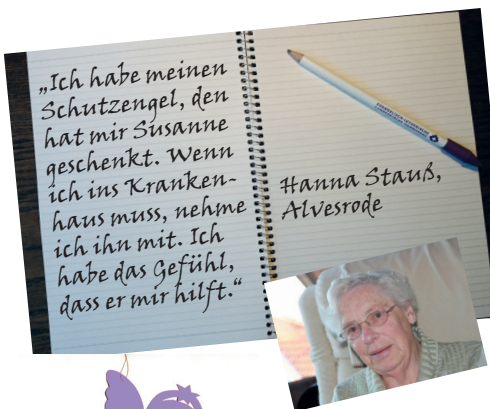 „Ich habe meinen
Schutzengel, den
hat mir Susanne
geschenkt. Wenn
ich ins Kranken-
haus muss, nehme
ich ihn mit. Ich
habe das Gefühl,
dass er mir hilft.“
Hanna Stauß,
Alvesrode